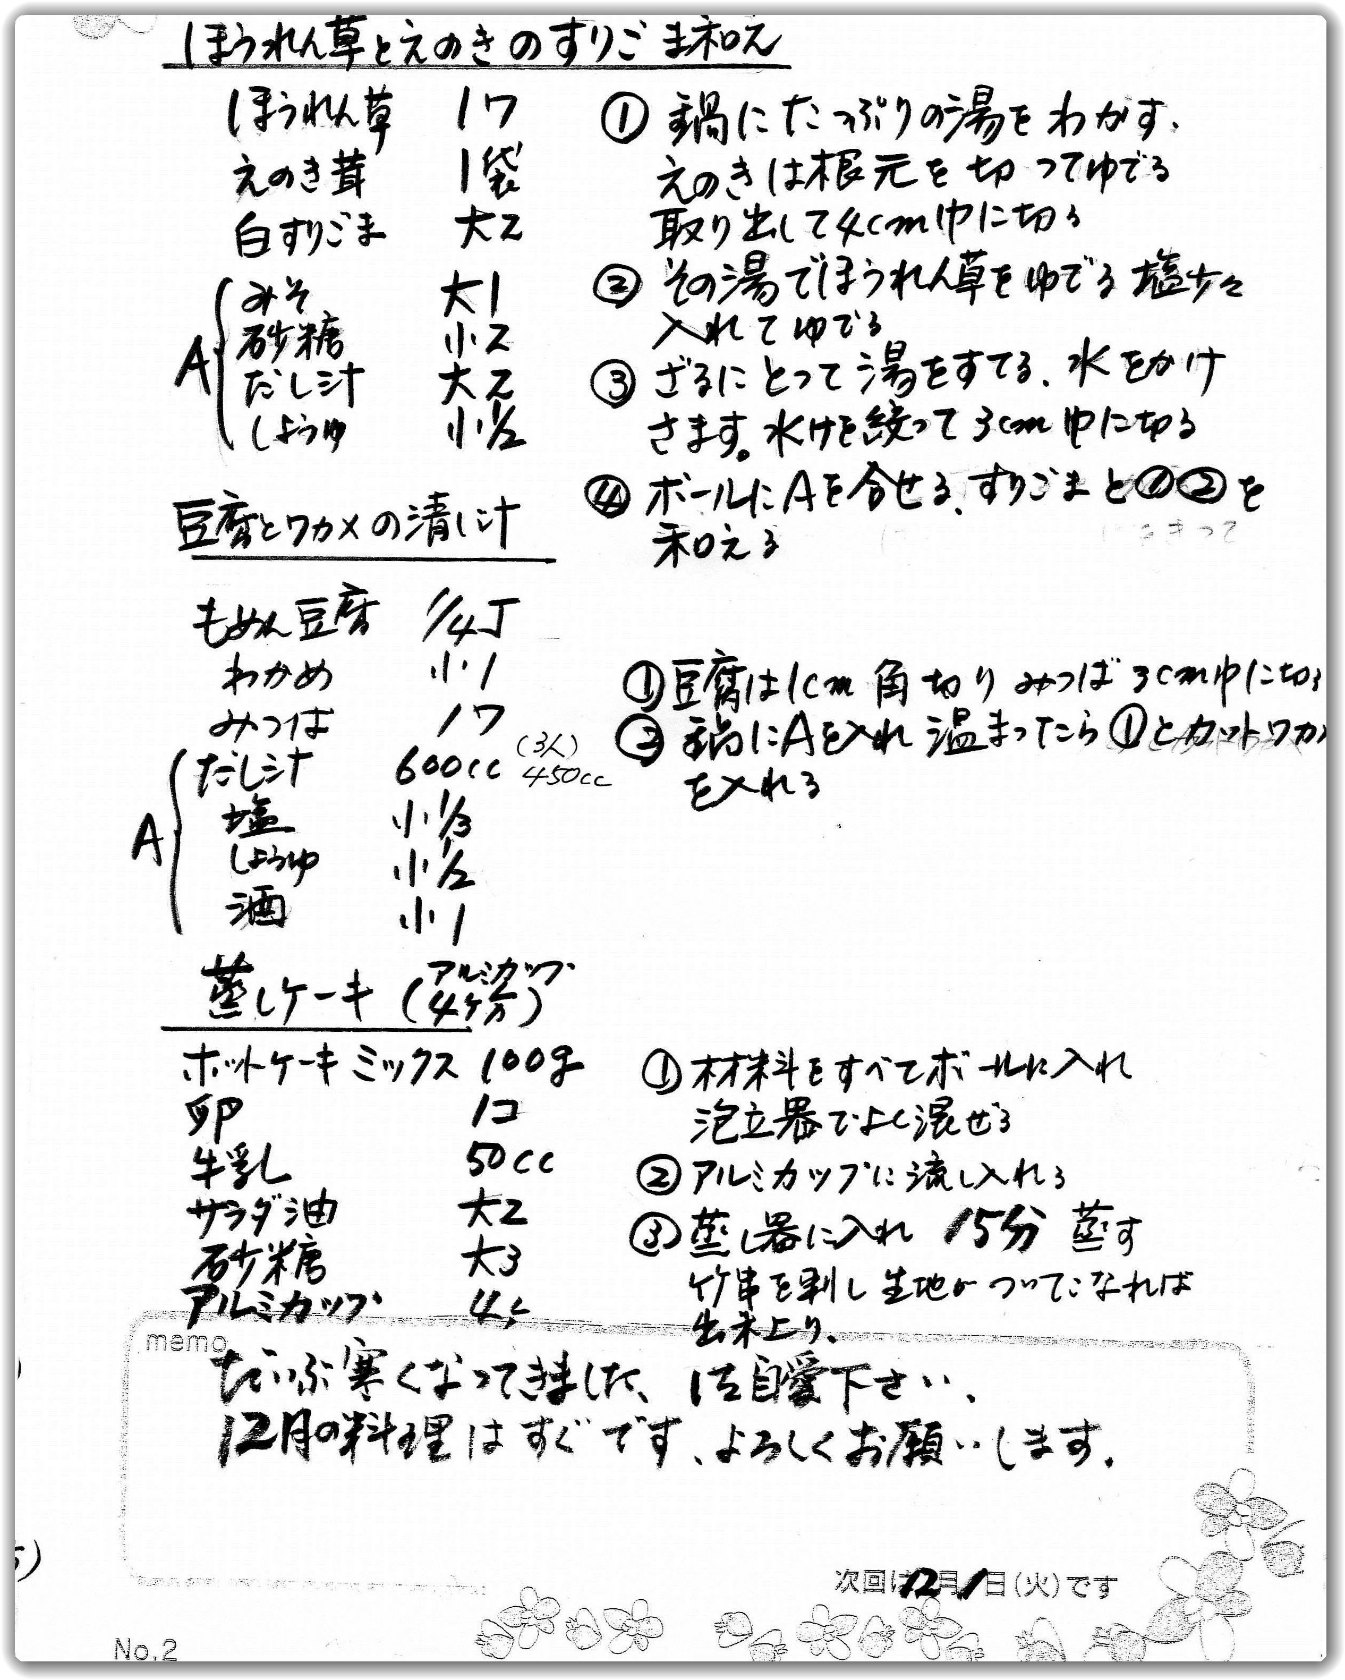 ほうれん草とえのきのすりごま和え
ほうれん草 1ワ
えのき茸 1袋
白すりごま 大2
A
みそ 大1
砂糖 小2
だし汁 大2
しょうゆ 小1/2
① 鍋にたっぷりの湯をわかす、
えのきは根元を切ってゆでる
取り出して4cm巾に切る
② その湯でほうれん草をゆでる 塩少々
入れてゆでる
③ ざるにとって湯をすてる、水をかけ
さます。水けを絞って3cm巾に切る
④ ボールにAを合せる、すりごまと①②を
和える
豆腐とワカメの清し汁
もめん豆腐 1/4丁
わかめ 小1
みつば 1ワ
A
だし汁 600cc (3人) 450cc
塩 小1/3
しょうゆ 小1/2
酒 小1
① 豆腐は1cm角切り みつば 3cm巾に切る
② 鍋にAを入れ 温まったら①とカットワカメ
を入れる
蒸しケーキ (アルミカップ 4ケ分)
ホットケーキミックス 100g
卵 1コ
牛乳 50cc
サラダ油 大2
砂糖 大3
アルミカップ 4ケ
① 材料をすべてボールに入れ
泡立器でよく混ぜる
② アルミカップに流し入れる
③ 蒸し器に入れ 15分 蒸す
竹串を刺し生地がついてこなれば
出来上り、
memo
だいぶ寒くなってきました、ご自愛下さい、
12月の料理はすぐです、よろしくお願いします。
次回は12月1日(火)です
No.2